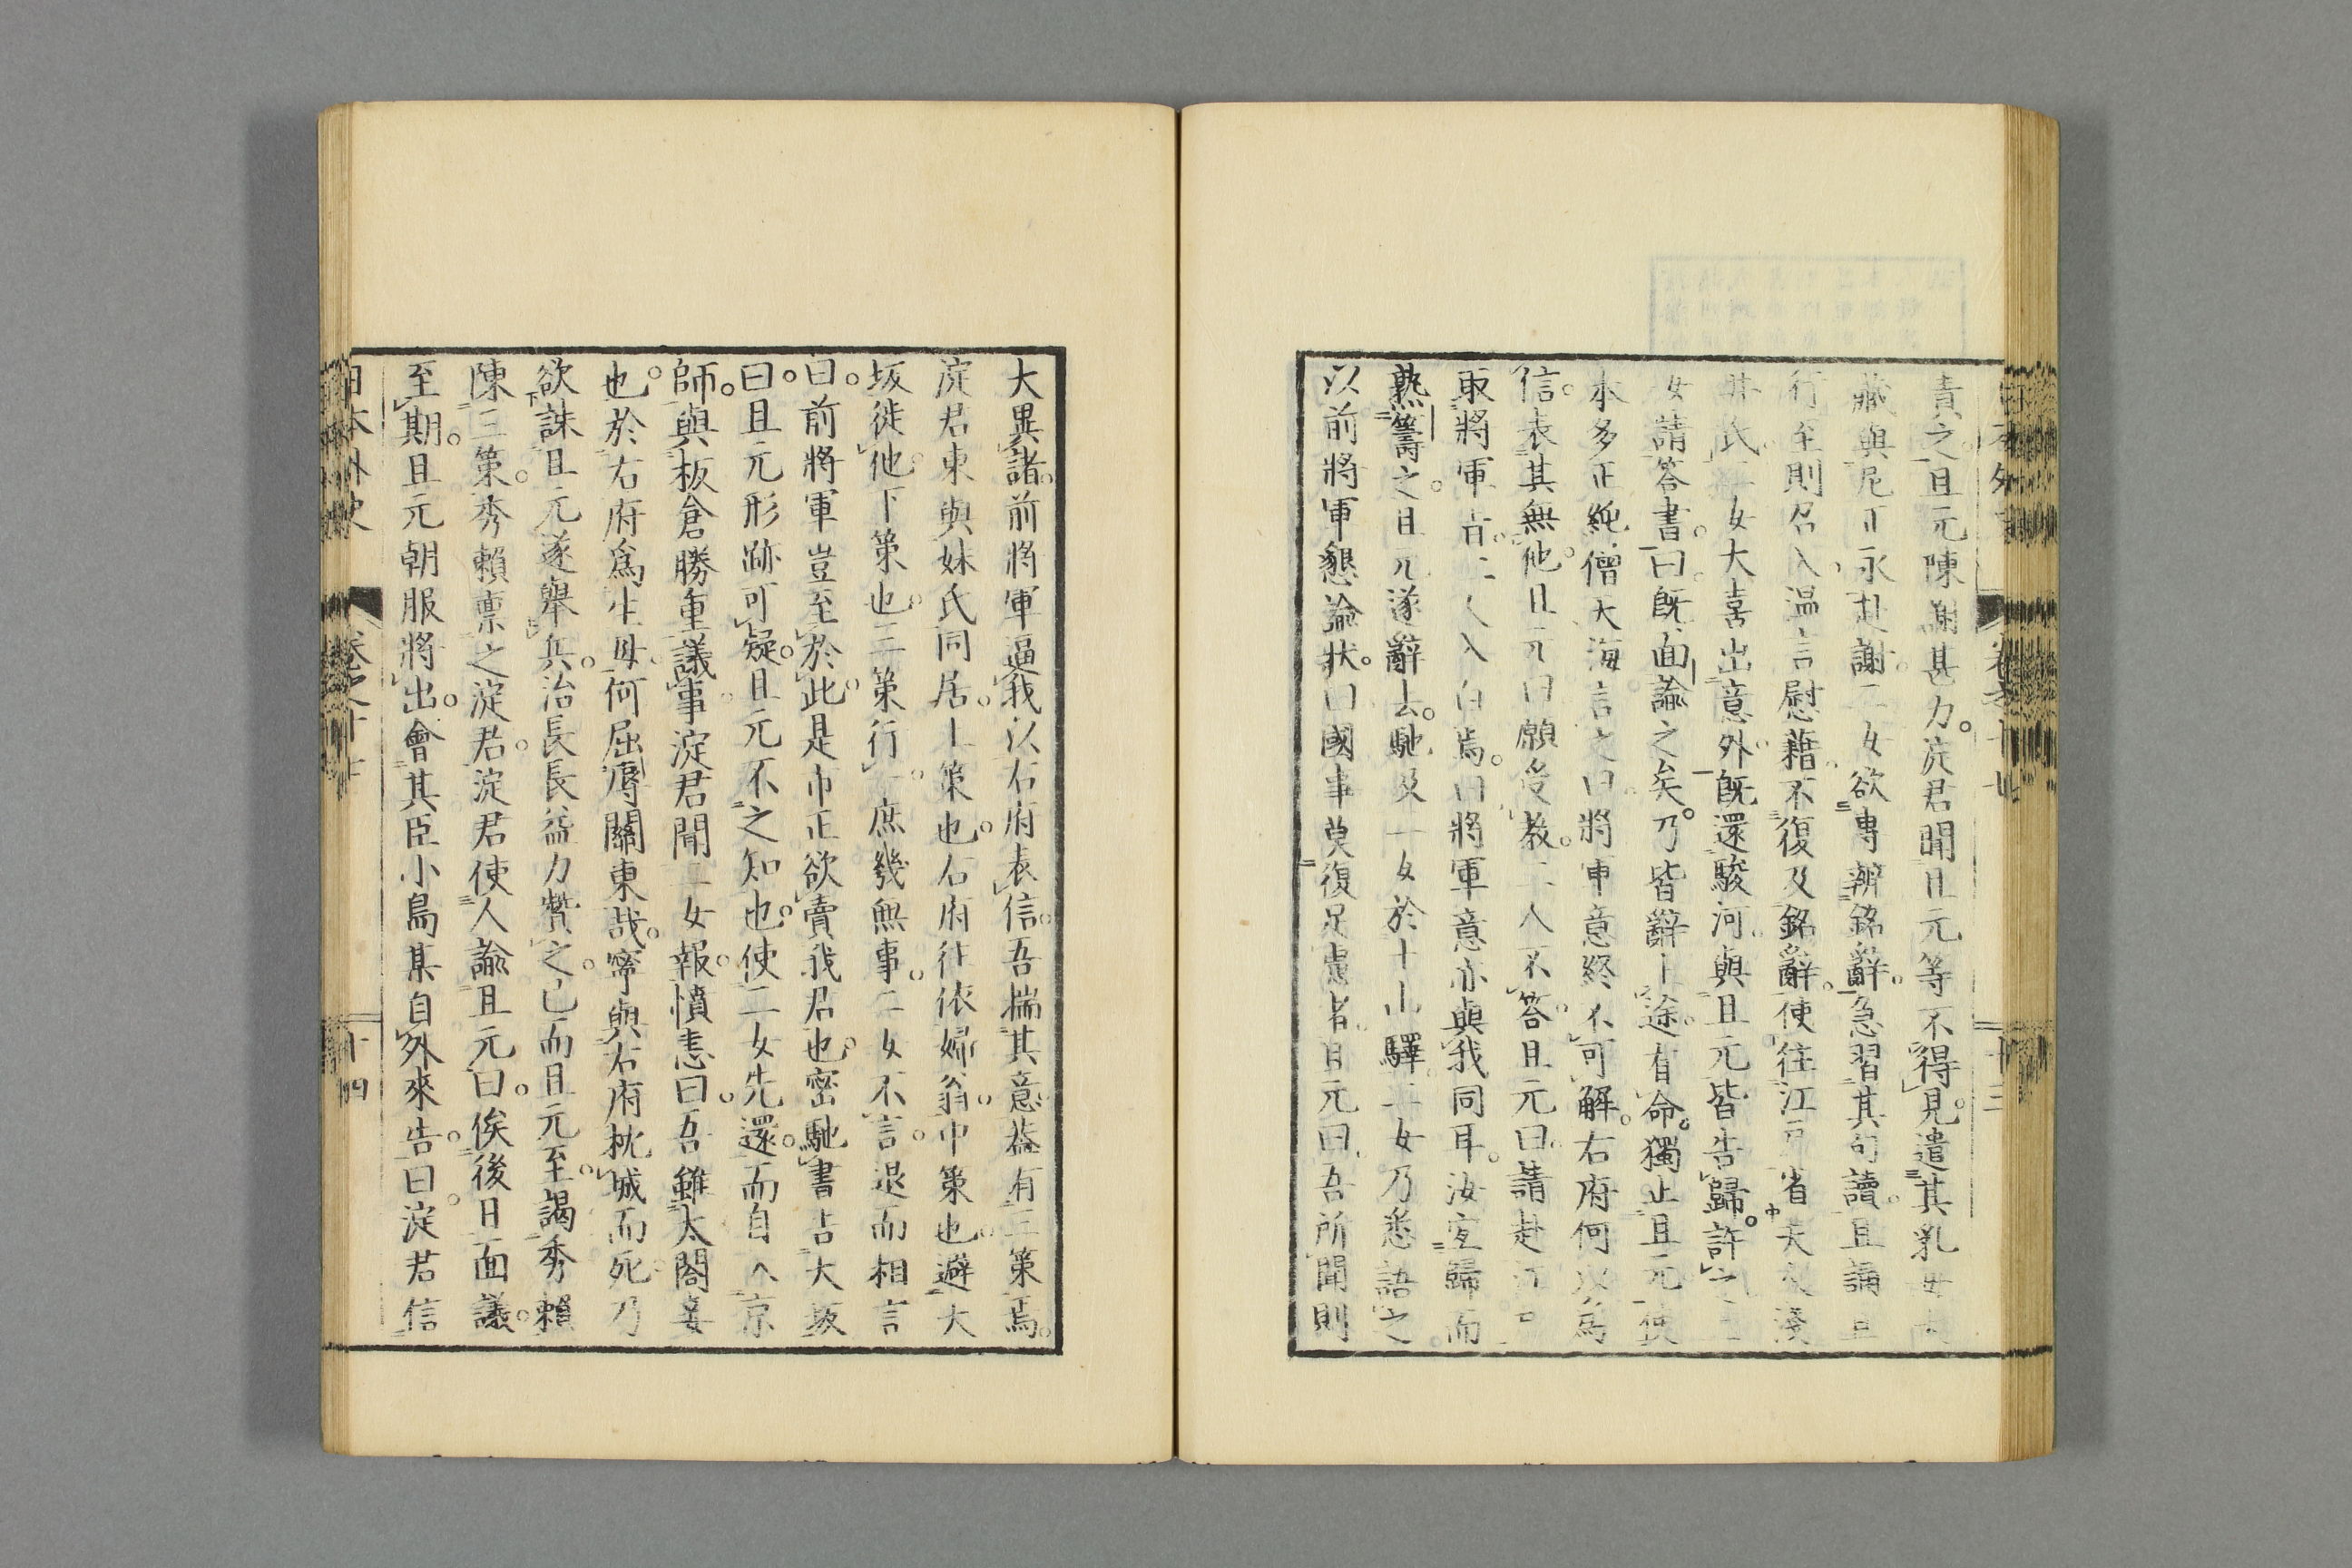 責之。且元陳謝甚力。淀君聞且元等不得見。遣其乳母大
藏與尼正永赴謝。二女欲專辨銘辭。急習其句讀。且誦且
行。至則召入。溫言慰藉。不復及銘辭。使往江戶省夫人淺
井氏。二女大喜出意外。既還駿河。與且元皆告歸。許之。二
女請答書。曰既面諭之矣。乃皆辭上途。有命。獨止且元。使
本多正純僧天海言之曰。將軍意終不可解。右府何以爲
信。表其無他。且元曰。願受教。二人不答。且元曰。請赴江戶
取將軍旨。二人入白焉。曰將軍意亦與我同耳。汝宜歸而
熟籌之。且元遂辭去。馳及二女於土山驛。二女乃悉語之
以前將軍懇諭狀。曰國事莫復足患者。且元曰。吾所聞則
日本外史 卷之十七 十三
大異諸。前將軍逼我以右府表信。吾揣其意。蓋有三策焉。
淀君東與妹氏同居。上策也。右府往依婦翁。中策也。避大
坂徙他。下策也。三策行一。庶幾無事。二女不言。退而相言
曰。前將軍豈至於此。是市正欲賣我君也。密馳書告大坂
曰。且元形跡可疑。且元不之知也。使二女先還。而自入京
師。與板倉勝重議事。淀君聞二女報。憤恚曰。吾雖太閤妾
也。於右府爲生母。何屈辱關東哉。寧與右府枕城而死。乃
欲誅且元遂舉兵。治長長益力贊之。已而且元至。謁秀賴
陳三策。秀賴稟之淀君。淀君使人諭且元曰。俟後日面議。
至期。且元朝服將出。會其臣小島某自外來。告曰。淀君信
日本外史 卷之十七 十四